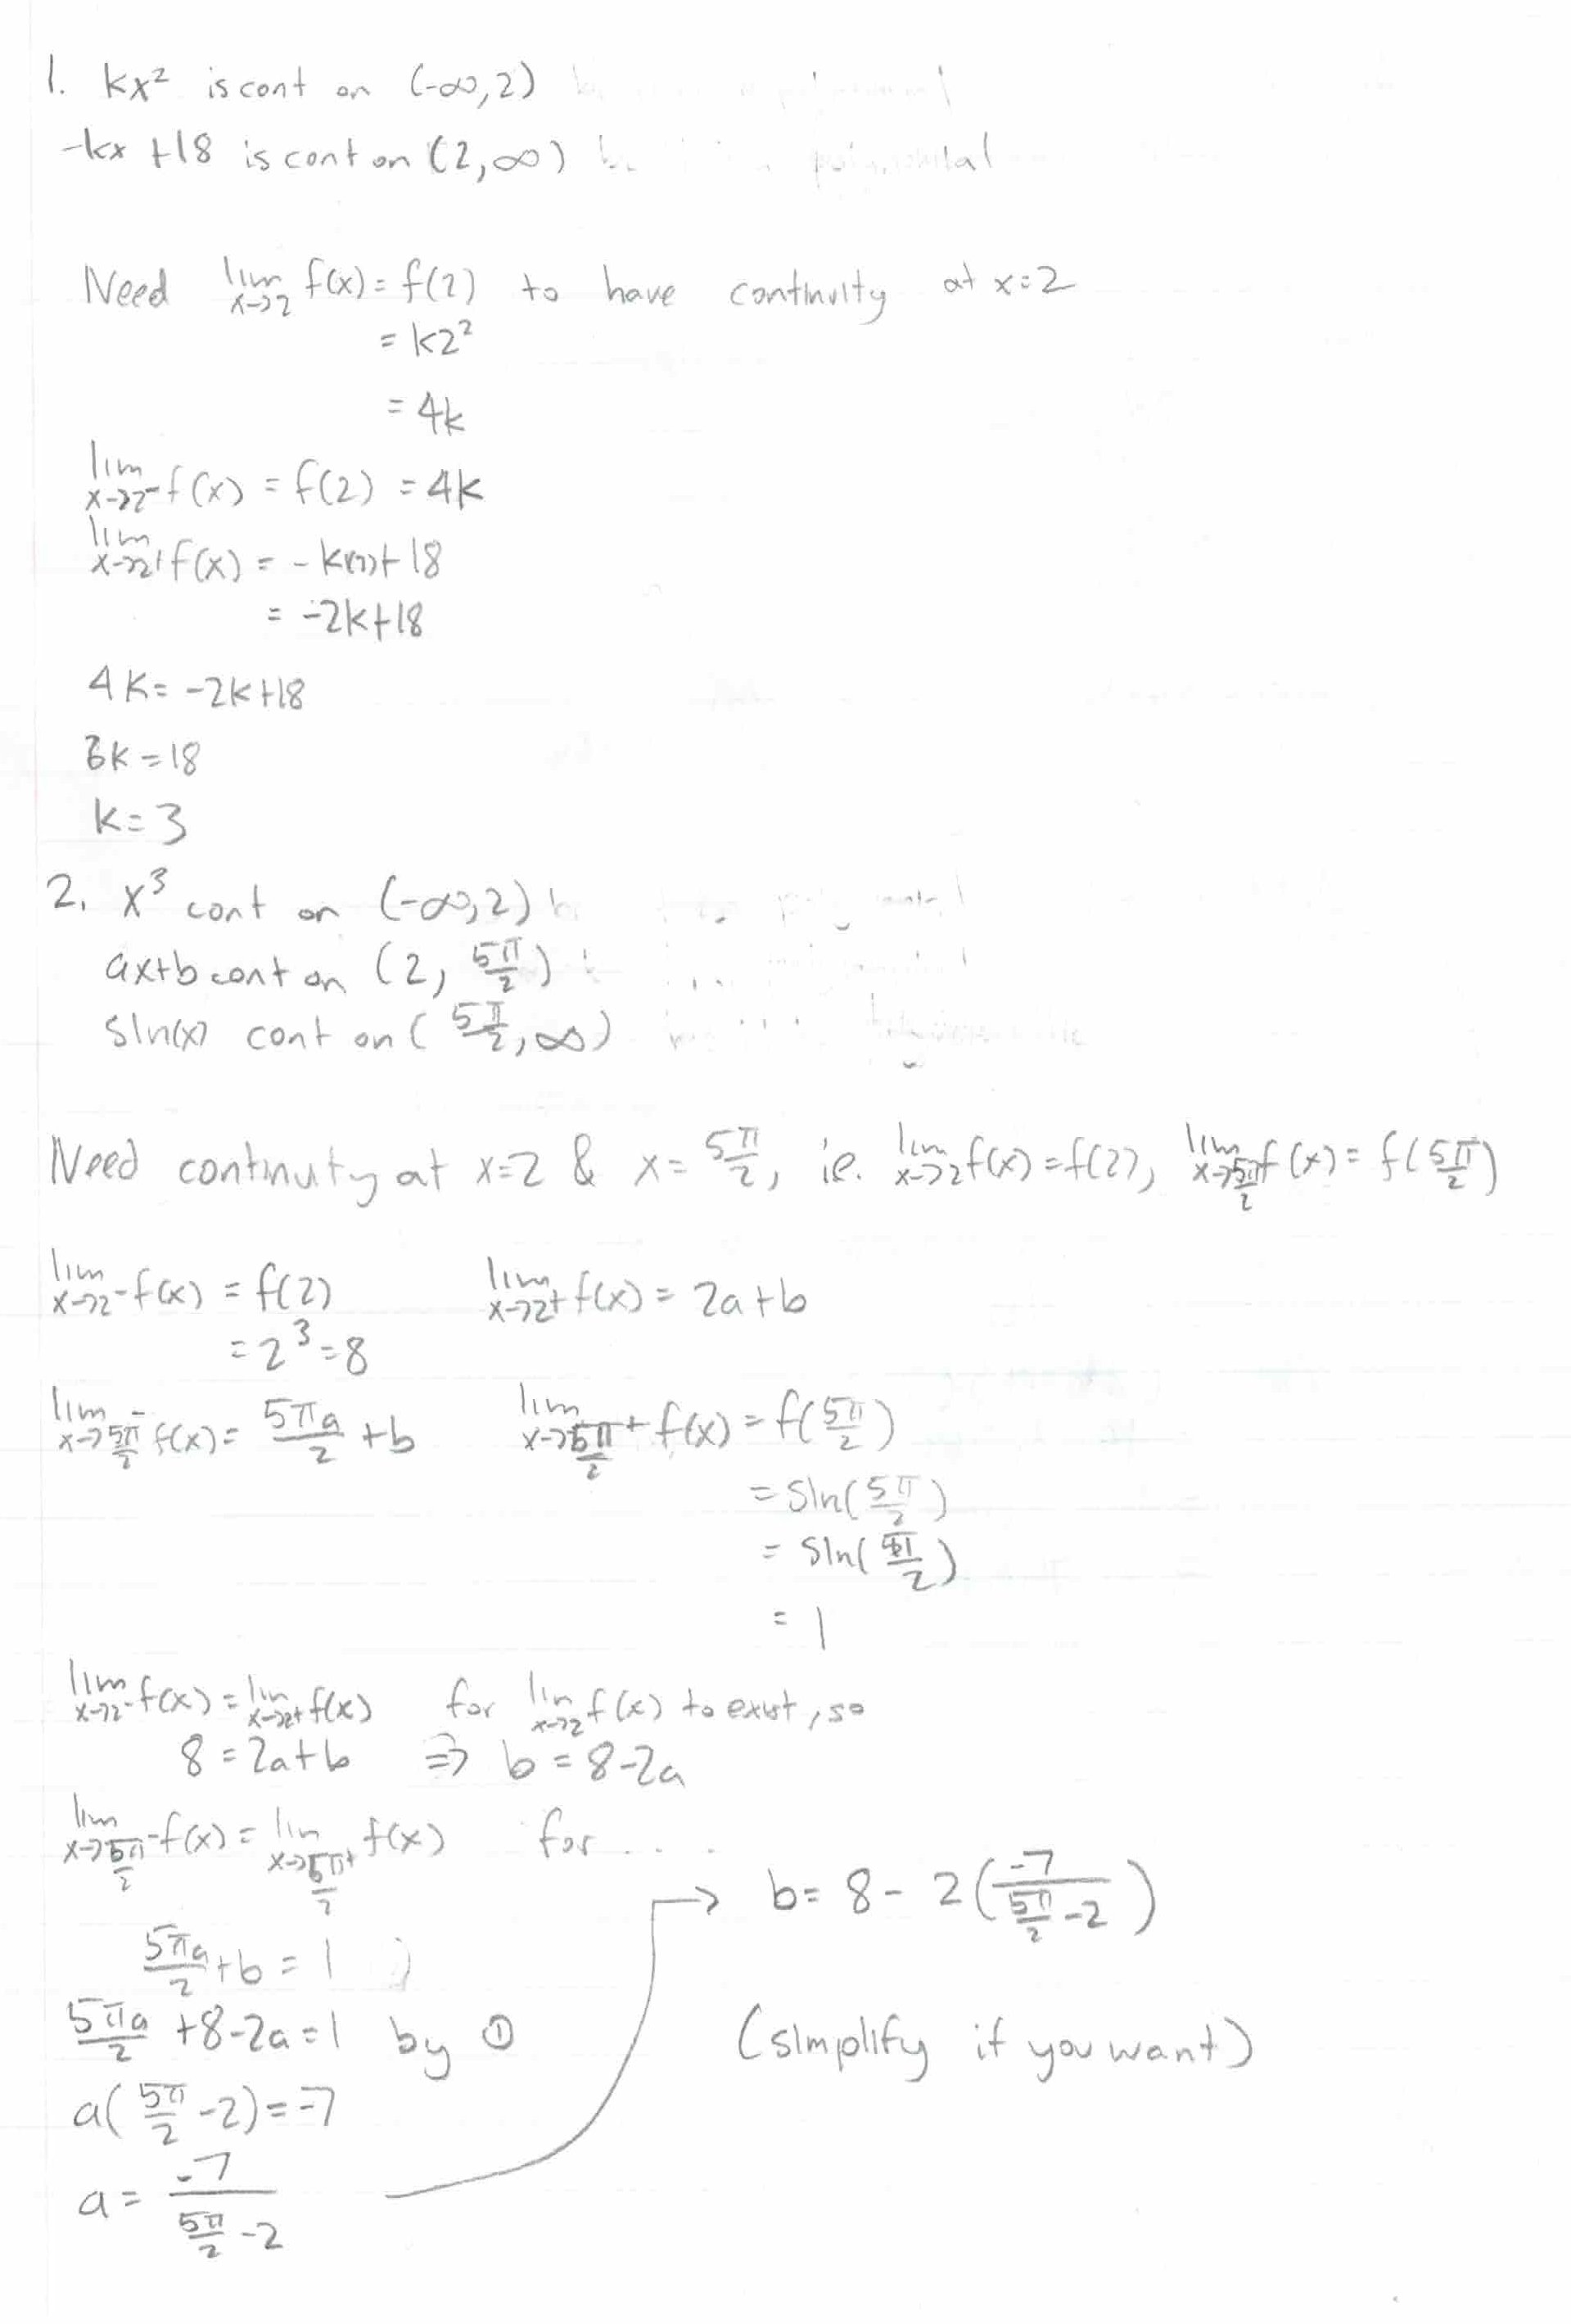 1. kx² is cont on (-∞,2)
-kx +18 is cont on (2,∞)
Need lim x→2 f(x) = f(2) to have continuity at x=2
= k2²
= 4k
lim x→2⁻ f(x) = f(2) = 4k
lim x→2⁺ f(x) = -k(2)+18
= -2k+18
4k = -2k+18
6k = 18
k = 3
2. x³ cont on (-∞,2)
ax+b cont on (2, 5π/2)
sin(x) cont on (5π/2, ∞)
Need continuity at x=2 & x= 5π/2, ie. lim x→2 f(x) = f(2), lim x→5π/2 f(x) = f(5π/2)
lim x→2⁻ f(x) = f(2) lim x→2⁺ f(x) = 2a+b
= 2³ = 8
lim x→5π/2⁻ f(x) = 5πa/2 + b lim x→5π/2⁺ f(x) = f(5π/2)
= sin(5π/2)
= sin(π/2)
= 1
lim x→2⁻ f(x) = lim x→2⁺ f(x) for lim x→2 f(x) to exist, so
8 = 2a+b ⇒ b = 8-2a
lim x→5π/2⁻ f(x) = lim x→5π/2⁺ f(x) for ....
5πa/2 + b = 1
5πa/2 + 8-2a = 1 by ①
a(5π/2 -2) = -7
a = -7/(5π/2 -2)
→ b = 8 - 2(-7/(5π/2 -2))
(simplify if you want)